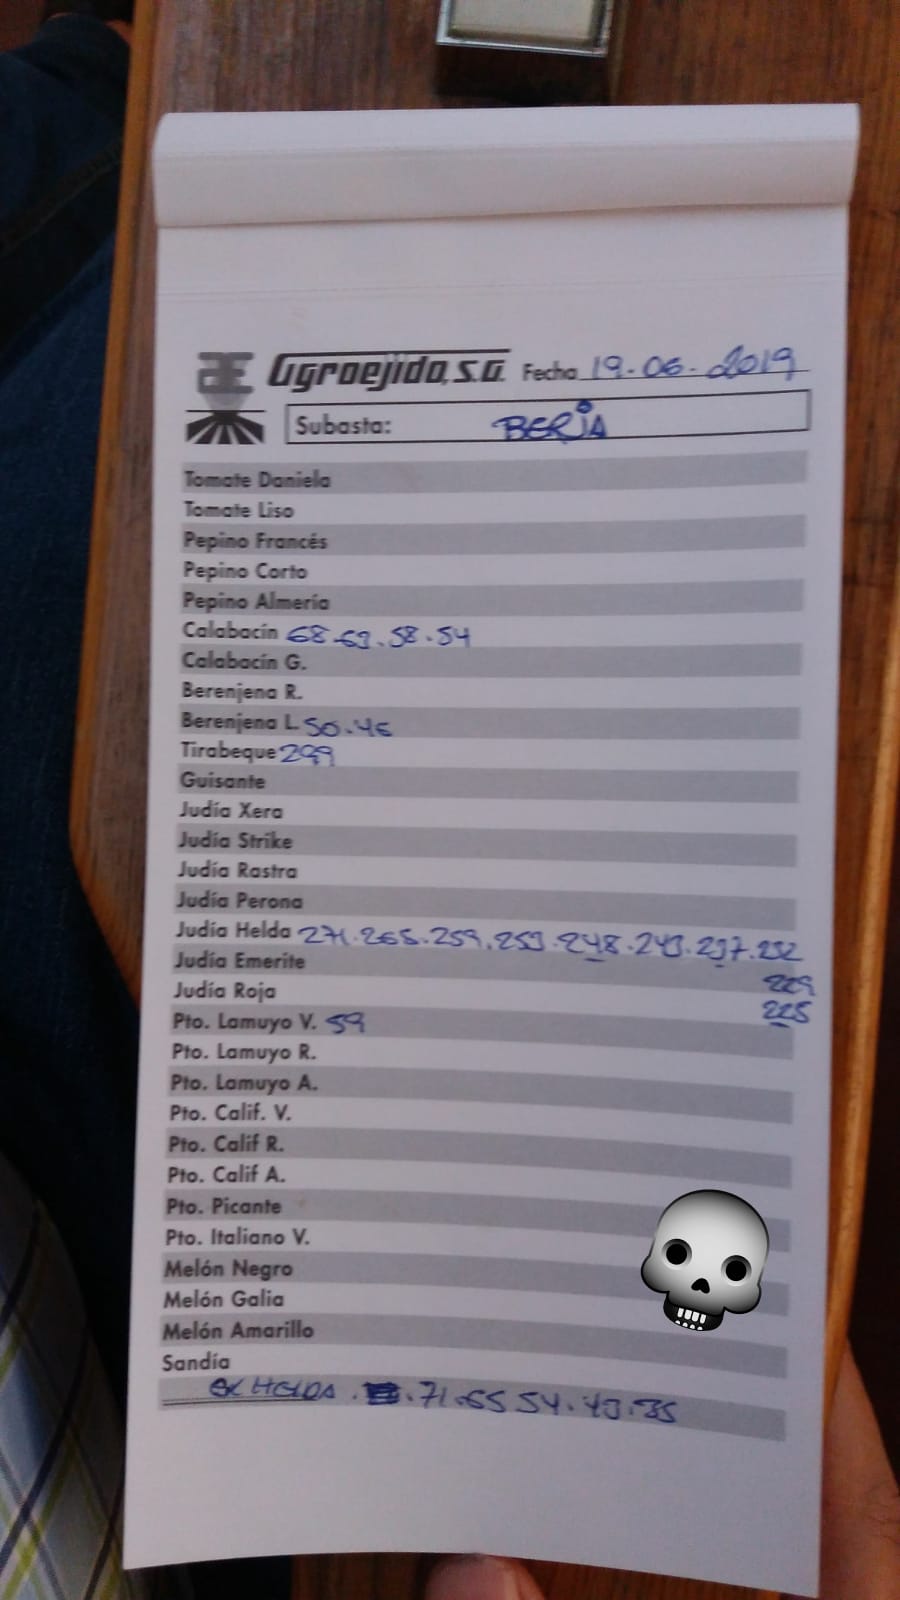 Agroejido, s.a. Fecha 19.06.2019
Subasta: BERJA
Tomate Daniela
Tomate Liso
Pepino Francés
Pepino Corto
Pepino Almería
Calabacín 68.63.58.54
Calabacín G.
Berenjena R.
Berenjena L 50.46
Tirabeque 299
Guisante
Judía Xera
Judía Strike
Judía Rastra
Judía Perona
Judía Helda 271.265.259.253.248.243.237.232
Judía Emerite 229
Judía Roja 225
Pto. Lamuyo V. 59
Pto. Lamuyo R.
Pto. Lamuyo A.
Pto. Calif. V.
Pto. Calif R.
Pto. Calif A.
Pto. Picante
Pto. Italiano V.
Melón Negro
Melón Galia
Melón Amarillo
Sandía
HELDA . 71.65 54.43.35